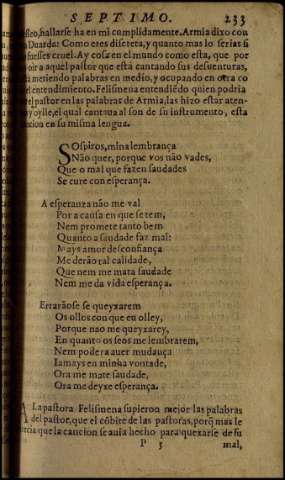 SEPTIMO. 233
sseo, hallarse ha en mi cumplidamente. Armia dixo con
Duarda: Como eres discreta, y quanto mas lo serias si
fuesses cruel. Ay cosa en el mundo como esta, que por
oir a aquel pastor que está cantando sus desuenturas,
metiendo palabras en medio, y ocupando en otra co
el entendimiento. Felismena entendiẽdo quien podria
el pastor en las palabras de Armia, las hizo estar aten-
y oylle, el qual cantaua al son de su instrumento, esta
cancion en su misma lengua.
SOspiros, mina lembrança
Não quer, porque vos não vades,
Que o mal que fazen saudades
Se cure con esperança.
A esperanza não me val
Por a causa en que se tem,
Nem promete tanto bem
Quanto a saudade faz mal:
Mays amor desconfiança
Me derão tal calidade,
Que nem me mata saudade
Nem me da vida esperança.
Errarãose se queyxarem
Os ollos con que eu olley,
Porque nao me queyxarey,
En quanto os seos me lembrarem,
Nem poderá auer mudança
Iamays en minha vontade,
Ora me mate saudade,
Ora me deyxe esperança.
A La pastora Felismena supieron mejor las palabras
del pastor, que el cõbite de las pastoras, porq̃ mas le
que la cancion se auia hecho para quexarse de su
P 5 mal,